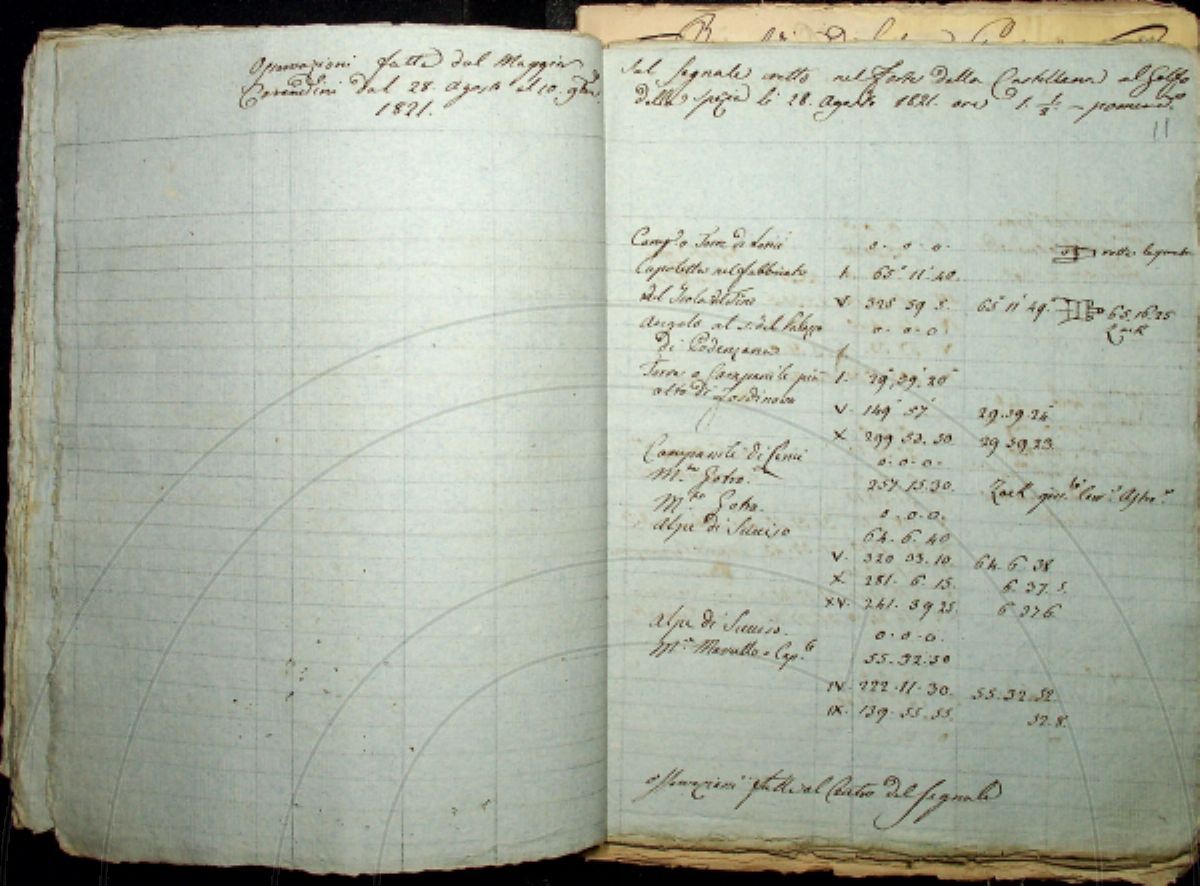 Operazioni fatte dal Maggior
dal 28. Agosto al 10. 9bre
1821.
Sul Segnale eretto nel Forte della Castellana al Golfo
della Spezia li 28. Agosto 1821. ore 1. 1/2 pomerid.e
11
Camp.e o Torre di Lerici 0. 0. 0.
Cupoletta nel fabbricato I. 65° 11' 40.
del Isola del Tino V. 325 59 5. 65° 11' 49" 65.16.25
Angolo al S. del Palazzo 0. 0. 0 Zack
di Podenzana
Torre o Campanile più I. 29° 59' 20"
alto di Fosdinovo
V. 149° 57' 29.59.24
X. 299 53. 50 29 59.23.
Campanile di Lerici 0. 0. 0.
M.te Gotro. 257. 15. 30. Zack
M.te Gotro. 0. 0. 0.
Alpe di Succiso 64. 6. 40
V. 320 33. 10. 64. 6. 38
X. 281. 6. 15. 6. 37. 5.
XV. 241. 39 25. 6 37 6
Alpe di Succiso. 0. 0. 0.
M.te 55. 32. 50
IV. 222. 11. 30. 55. 32. 52.
IX. 139. 55. 55. 52. 8.
osservazioni fatte al Centro del Segnale